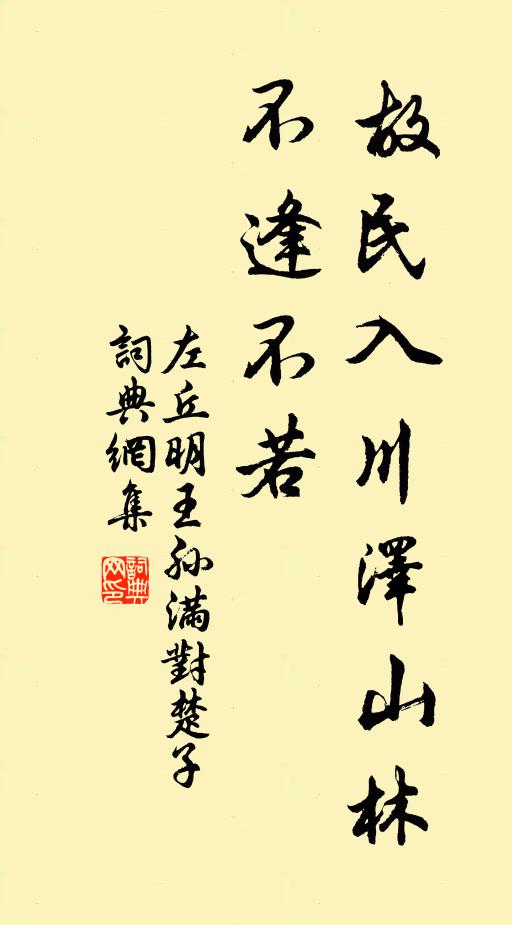 故民入川澤山林
不逢不若
左丘明王孫滿對楚子
詞典網集
詞典
网印